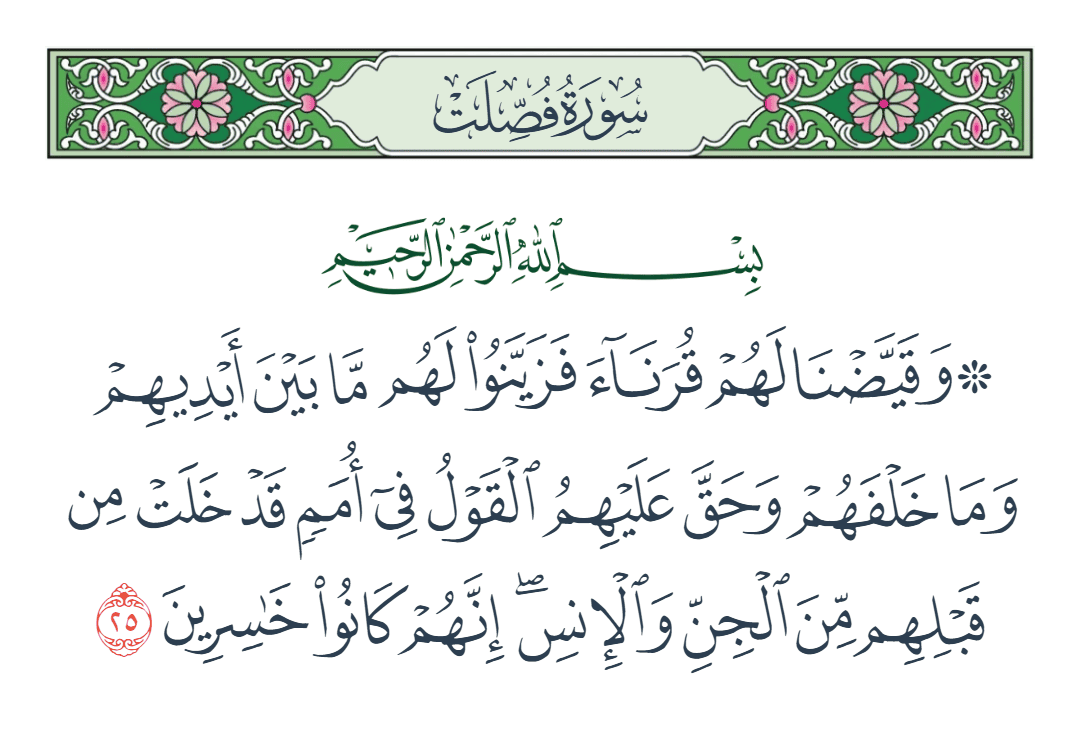 سُورَةُ فُصِّلَتْ
بِسْمِ ٱللَّهِ ٱلرَّحْمَٰنِ ٱلرَّحِيمِ
۞ وَقَيَّضْنَا لَهُمْ قُرَنَآءَ فَزَيَّنُوا۟ لَهُم مَّا بَيْنَ أَيْدِيهِمْ
وَمَا خَلْفَهُمْ وَحَقَّ عَلَيْهِمُ ٱلْقَوْلُ فِىٓ أُمَمٍ قَدْ خَلَتْ مِن
قَبْلِهِم مِّنَ ٱلْجِنِّ وَٱلْإِنسِ ۖ إِنَّهُمْ كَانُوا۟ خَٰسِرِينَ ٢٥